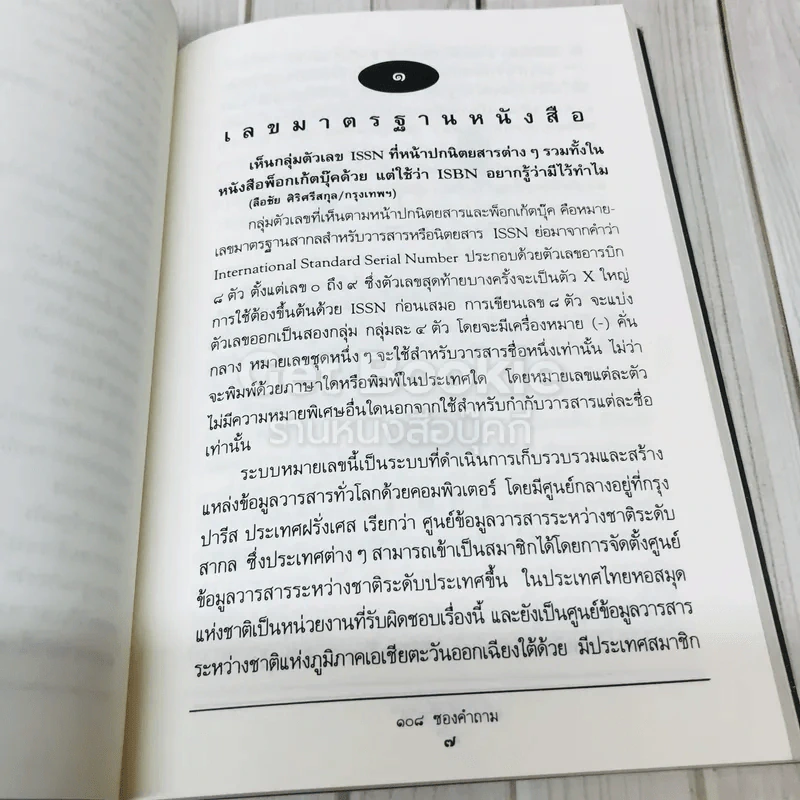 ๑
เลขมาตรฐานหนังสือ
เห็นกลุ่มตัวเลข ISSN ที่หน้าปกนิตยสารต่าง ๆ รวมทั้งใน
หนังสือพ็อกเก้ตบุ๊คด้วย แต่ใช้ว่า ISBN อยากรู้ว่ามีไว้ทำไม
(ลือชัย ศิริศรีสกุล/กรุงเทพฯ)
กลุ่มตัวเลขที่เห็นตามหน้าปกนิตยสารและพ็อกเก้ตบุ๊ค คือหมาย-
เลขมาตรฐานสากลสำหรับวารสารหรือนิตยสาร ISSN ย่อมาจากคำว่า
International Standard Serial Number ประกอบด้วยตัวเลขอารบิก
๘ ตัว ตั้งแต่เลข ๐ ถึง ๙ ซึ่งตัวเลขสุดท้ายบางครั้งจะเป็นตัว X ใหญ่
การใช้ต้องขึ้นต้นด้วย ISSN ก่อนเสมอ การเขียนเลข ๘ ตัว จะแบ่ง
ตัวเลขออกเป็นสองกลุ่ม กลุ่มละ ๔ ตัว โดยจะมีเครื่องหมาย (-) คั่น
กลาง หมายเลขชุดหนึ่ง ๆ จะใช้สำหรับวารสารชื่อหนึ่งเท่านั้น ไม่ว่า
จะพิมพ์ด้วยภาษาใดหรือพิมพ์ในประเทศใด โดยหมายเลขแต่ละตัว
ไม่มีความหมายพิเศษอื่นใดนอกจากใช้สำหรับกำกับวารสารแต่ละชื่อ
เท่านั้น
Get Bookie
ร้านหนังสือบุ๊คกี้
ระบบหมายเลขนี้เป็นระบบที่ดำเนินการเก็บรวบรวมและสร้าง
แหล่งข้อมูลวารสารทั่วโลกด้วยคอมพิวเตอร์ โดยมีศูนย์กลางอยู่ที่กรุง
ปารีส ประเทศฝรั่งเศส เรียกว่า ศูนย์ข้อมูลวารสารระหว่างชาติระดับ
สากล ซึ่งประเทศต่าง ๆ สามารถเข้าเป็นสมาชิกได้โดยการจัดตั้งศูนย์
ข้อมูลวารสารระหว่างชาติระดับประเทศขึ้น ในประเทศไทยหอสมุด
แห่งชาติเป็นหน่วยงานที่รับผิดชอบเรื่องนี้ และยังเป็นศูนย์ข้อมูลวารสาร
ระหว่างชาติแห่งภูมิภาคเอเชียตะวันออกเฉียงใต้ด้วย มีประเทศสมาชิก
๑๐๘ ซองคำถาม
๗